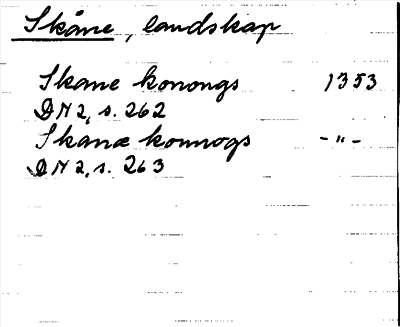 Skåne, landskap
Skane konongs 1353
DN 2, s. 262
Skanæ konnogs - " -
DN 2, s. 263